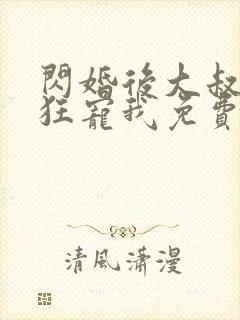 閃婚後大叔
狂寵我免費
清風瀟漫